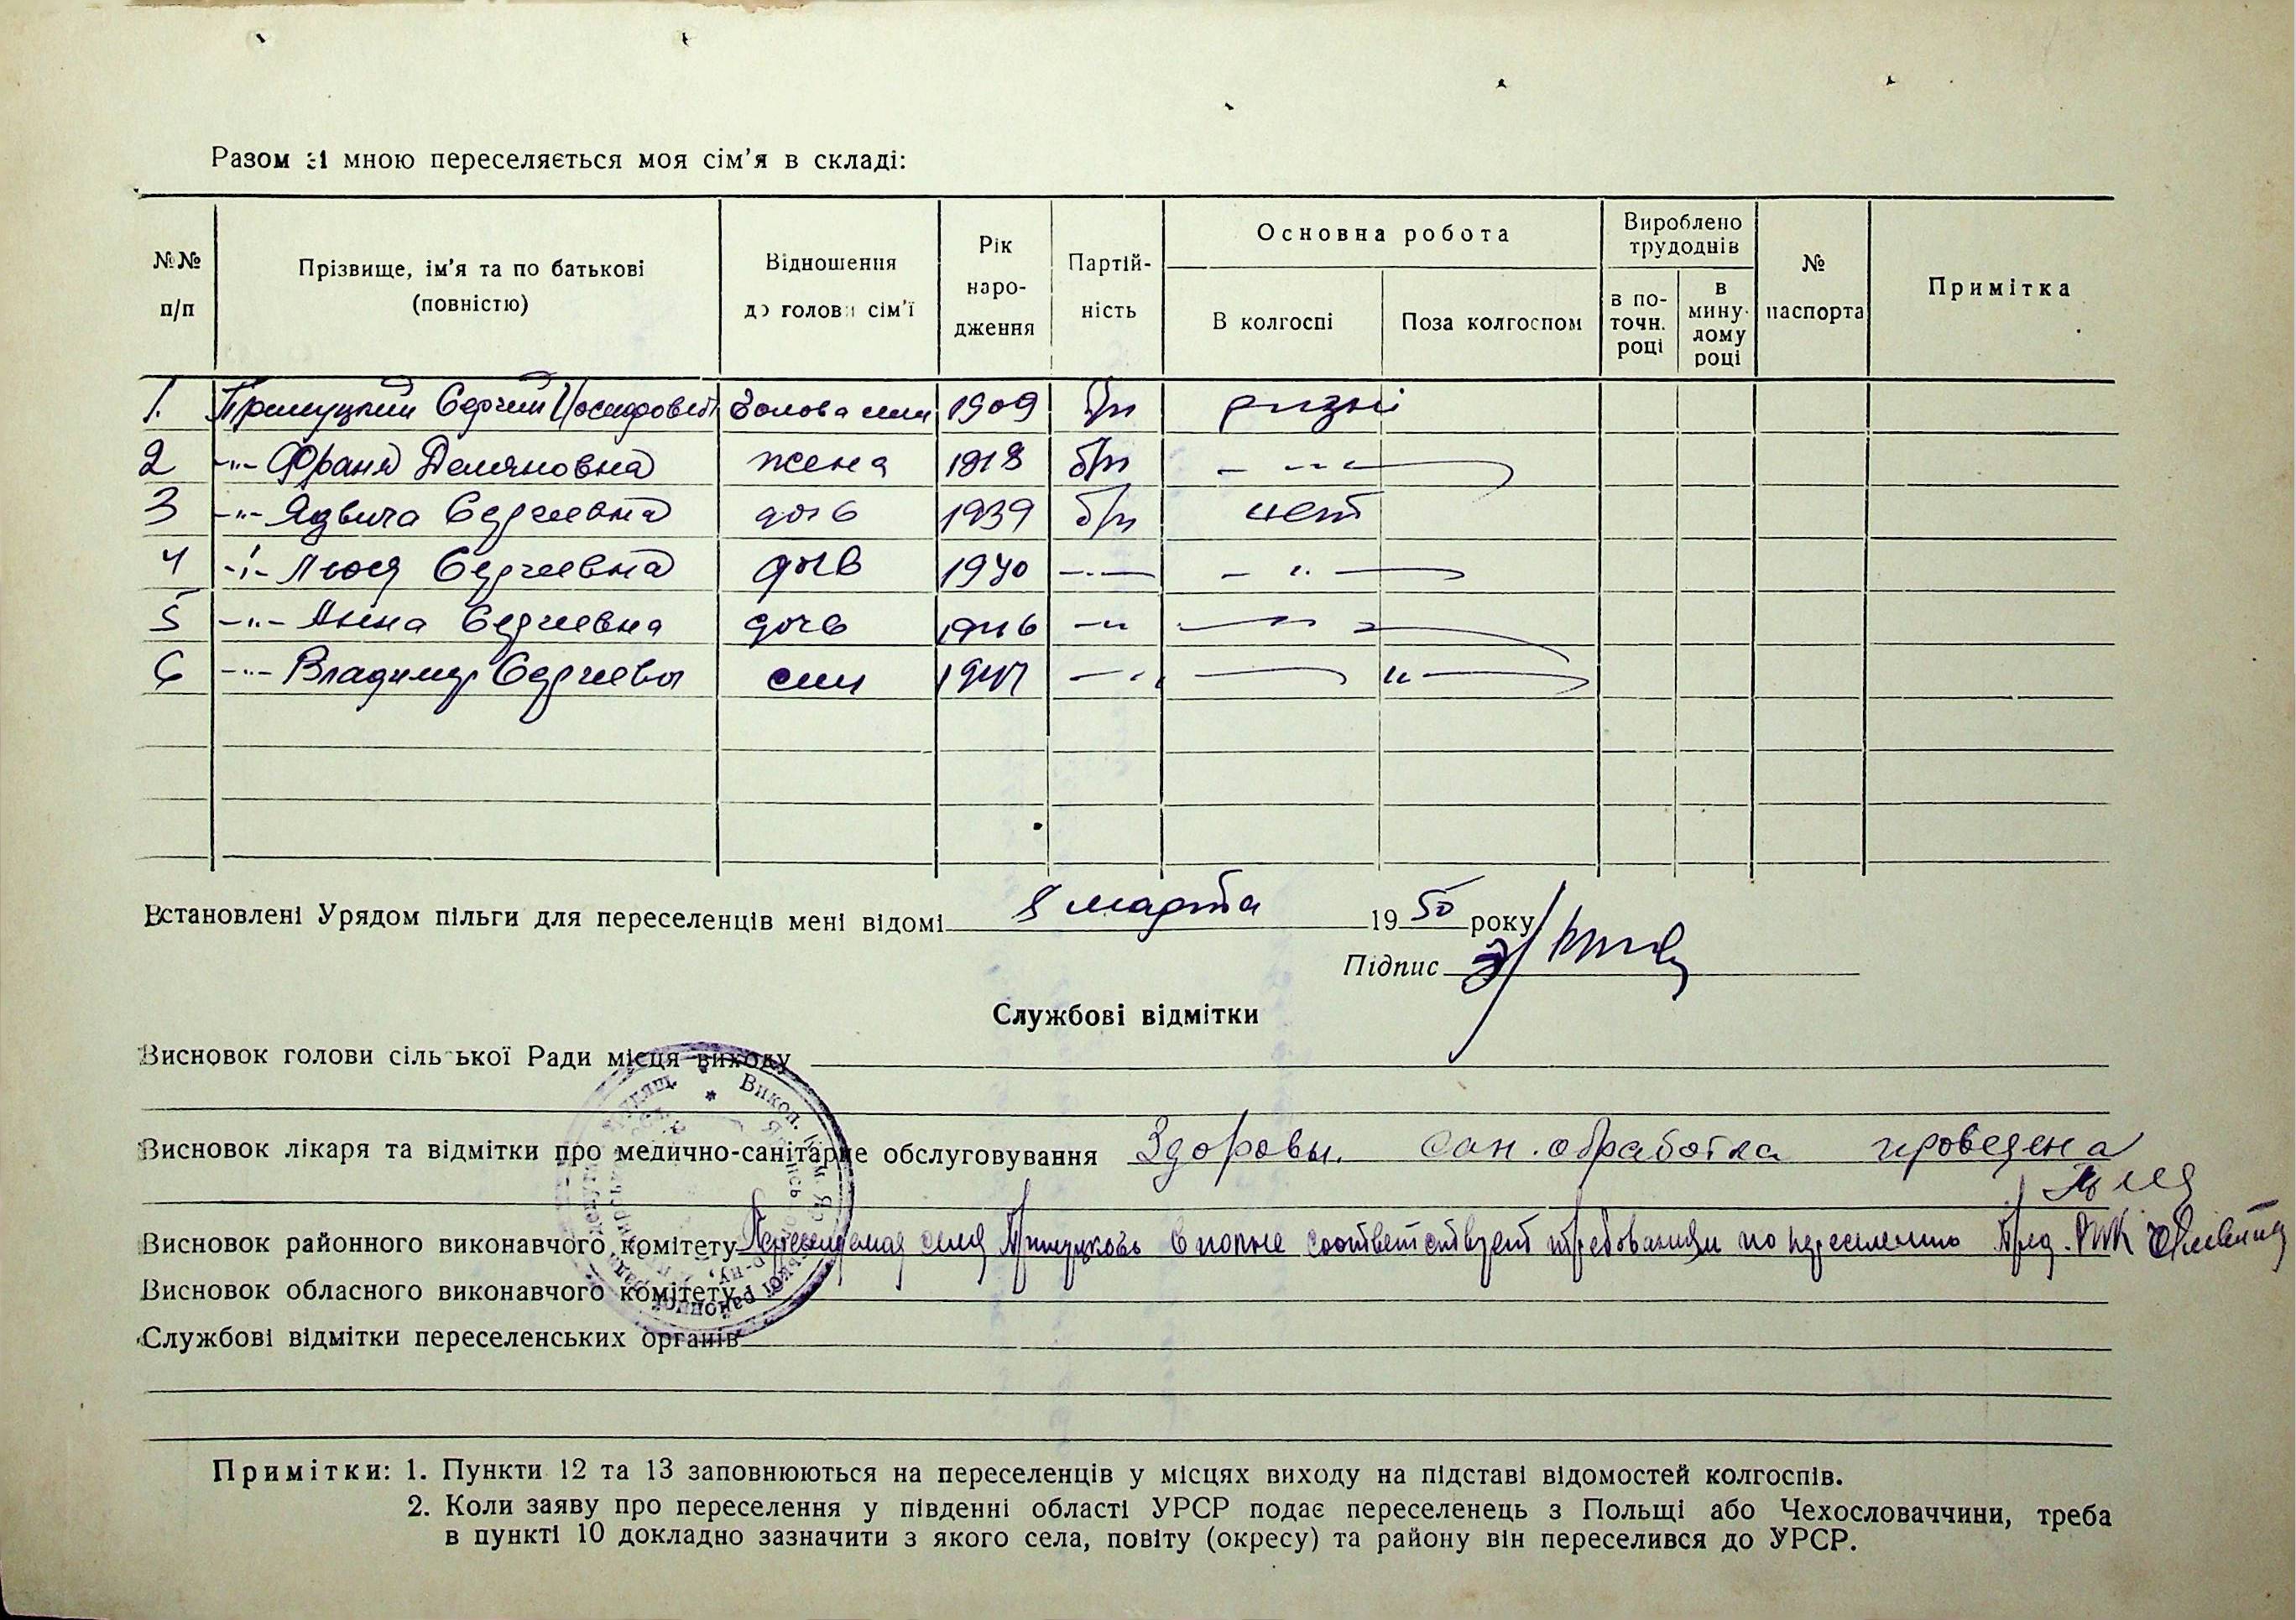 Разом зі мною переселяється моя сім'я в складі:
№№ п/п
Прізвище, ім'я та по батькові (повністю)
Відношення до голови сім'ї
Рік народження
Партій-
ність
Основна робота
В колгоспі
Поза колгоспом
Вироблено
трудоднів
в по-
точн.
році
в
мину-
лому
році
№
паспорта
Примітка
1. Сергий голова 1909 б/п ризні
2 -"- Франя Демяновна жена 1918 б/п - -"-
3 -"- Ядвига Сергеевна дочь 1939 б/п нет
4 -"- Люся Сергеевна дочь 1940 -"- - " -
5 -"- Анна Сергеевна дочь 1946 -"- -"-
6 -"- Владимир син 1947 -"- - " -
Встановлені Урядом пільги для переселенців мені відомі 8 марта 1950 року
Підпис
Службові відмітки
Висновок голови сільської Ради місця виходу
Висновок лікаря та відмітки про медично-санітарне обслуговування Здоровы. Сан. обработка проведена
Висновок районного виконавчого комітету соответствует требованиям по переселению Пред. РИК
Висновок обласного виконавчого комітету
Службові відмітки переселенських органів
Примітки: 1. Пункти 12 та 13 заповнюються на переселенців у місцях виходу на підставі відомостей колгоспів.
2. Коли заяву про переселення у південні області УРСР подає переселенець з Польщі або Чехословаччини, треба
в пункті 10 докладно зазначити з якого села, повіту (окресу) та району він переселився до УРСР.